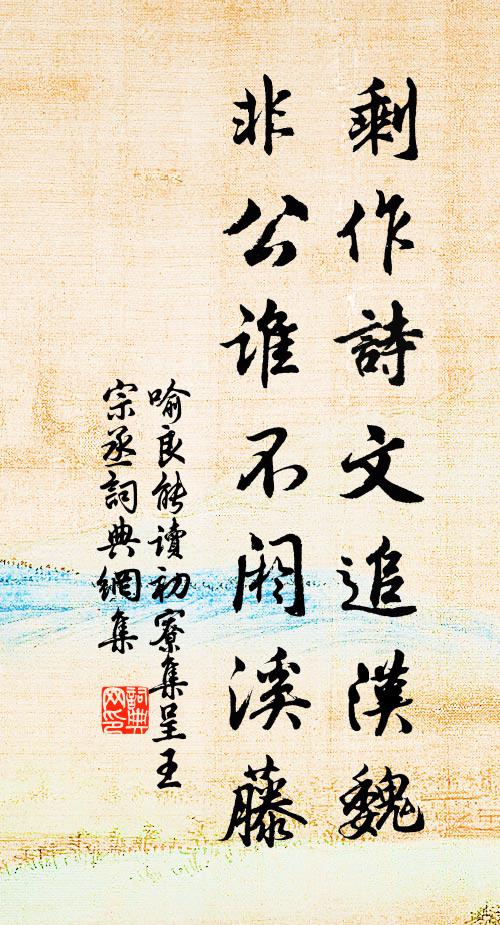 剩作詩文追漢魏
非公誰不閣溪藤
喻良能讀初寮集呈王
宗丞詞典網集
詞典
网印